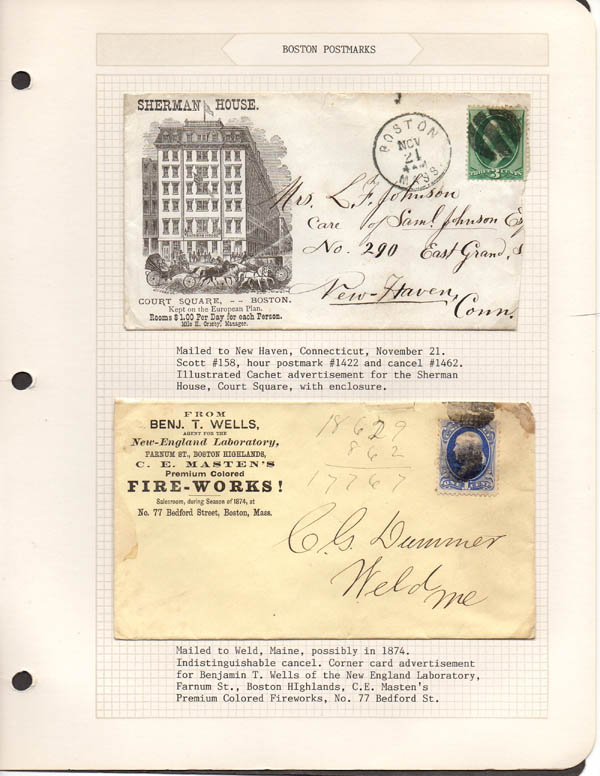 BOSTON POSTMARKS
SHERMAN HOUSE.
BOSTON
NOV
21
MASS.
THREE 3 CENTS
Mrs. L. F. Johnson
Care of Saml. Johnson Esq
No. 290 East Grand, S
New-Haven,
Conn.
COURT SQUARE, -- BOSTON.
Kept on the European Plan.
Rooms $1.00 Per Day for each Person.
Milo H. Crosby, Manager.
Mailed to New Haven, Connecticut, November 21.
Scott #158, hour postmark #1422 and cancel #1462.
Illustrated Cachet advertisement for the Sherman
House, Court Square, with enclosure.
FROM
BENJ. T. WELLS,
AGENT FOR THE
New-England Laboratory,
FARNUM ST., BOSTON HIGHLANDS,
C. E. MASTEN'S
Premium Colored
FIRE-WORKS!
Salesroom, during Season of 1874, at
No. 77 Bedford Street, Boston, Mass.
18629
862
17767
C. G. Dummer
Weld
Me
Mailed to Weld, Maine, possibly in 1874.
Indistinguishable cancel. Corner card advertisement
for Benjamin T. Wells of the New England Laboratory,
Farnum St., Boston HIghlands, C.E. Masten's
Premium Colored Fireworks, No. 77 Bedford St.